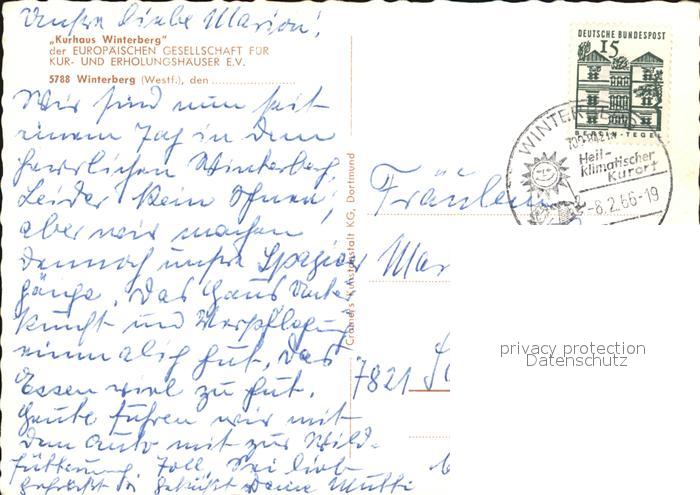 Unsre liebe Marion!
„Kurhaus Winterberg"
der EUROPÄISCHEN GESELLSCHAFT FÜR
KUR- UND ERHOLUNGSHÄUSER E.V.
5788 Winterberg (Westf.), den
Wir sind nun seit
einem Tag in dem
herrlichen Winterberg
Leider kein Schnee,
aber wir machen
dennoch unsre Spazier
gänge. Das Haus Unter
kunft und Verpflegung
einmalig gut, das
Essen viel zu gut.
Heute fuhren wir mit
dem Auto mit zur Wild-
fütterung. Toll. Sei lieb
gegrüßt geküßt Deine Mutti
Cramers Kunstanstalt KG, Dortmund
DEUTSCHE BUNDESPOST
15
BERLIN-TEGEL
WINTER
Heil-
klimatischer
Kurort
-8.2.66-19
Fräulein
Mar
7821
privacy protection
Datenschutz